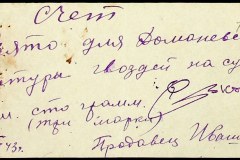 Счет
взято для Доманевс
атуры гвоздей на су
сто грамм.
(три марки)
43г. Продавец Иваш